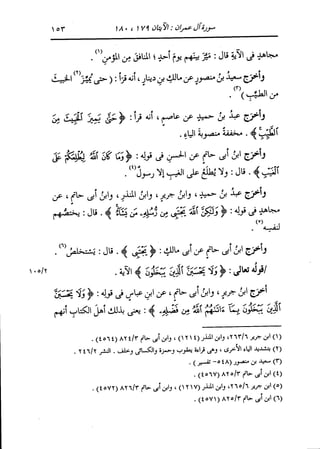 سورة آل عمران : الآيتان ١٧٩ ، ١٨٠ ١٥٣
مجاهد فى الآية قال : ميَّز بينهم يوم أحد ؛ المنافق من المؤمن(١) .
وأخرج سعيد بن منصور عن مالك بن دينار ، أنه قرأ : ( حتى يُمَيِّز(٢) الخبيث
من الطيب )(٣) .
وأخرج عبد بن حميد عن عاصم ، أنه قرأ : ﴿ حَتَّى يَمِيزَ الْخَبِيثَ مِنَ
الطَّيِّبِ ﴾ . مخففة منصوبة الياء .
وأخرج ابن أبى حاتم عن الحسن فى قوله : ﴿ وَمَا كَانَ اللَّهُ لِيُطْلِعَكُمْ عَلَى
الْغَيْبِ ﴾ . قال : ولا يُطلع على الغيب إلا رسول(٤) .
وأخرج عبد بن حميد ، وابن جرير ، وابن المنذر ، وابن أبى حاتم ، عن
مجاهد فى قوله : ﴿ وَلَكِنَّ اللَّهَ يَجْتَبِى مِن رُّسُلِهِ مَن يَشَاءُ ﴾ . قال : يختصُّهم
لنفسِه(٥) .
وأخرج ابن أبى حاتم عن أبى مالك : ﴿ يَجْتَبِى ﴾ . قال : يستخلص(٦) .
قوله تعالى : ﴿ وَلَا يَحْسَبَنَّ الَّذِينَ يَبْخَلُونَ ﴾ الآية .
١٠٥/٢
أخرج ابن جرير ، وابن أبى حاتم ، عن ابن عباس فى قوله : ﴿ وَلَا يَحْسَبَنَّ
الَّذِينَ يَبْخَلُونَ بِمَا ءَاتَاهُمُ اللَّهُ مِن فَضْلِهِ ﴾ : يعنى بذلك أهل الكتاب أنهم
(١) ابن جرير ٢٦٣/٦ ، وابن المنذر (١٢١٤) ، وابن أبى حاتم ٨٢٤/٣ (٤٥٦٤) .
(٢) بتشديد الياء الأخرى ، وهى قراءة يعقوب وحمزة والكسائى وخلف . النشر ٢٤٦/٢ .
(٣) سعيد بن منصور (٥٤٨ - تفسير) .
(٤) ابن أبى حاتم ٨٢٥/٣ (٤٥٦٧) .
(٥) ابن جرير ٢٦٥/٦ ، وابن المنذر (١٢١٧) ، وابن أبى حاتم ٨٢٦/٣ (٤٥٧٢) .
(٦) ابن أبى حاتم ٨٢٥/٣ (٤٥٧١) .